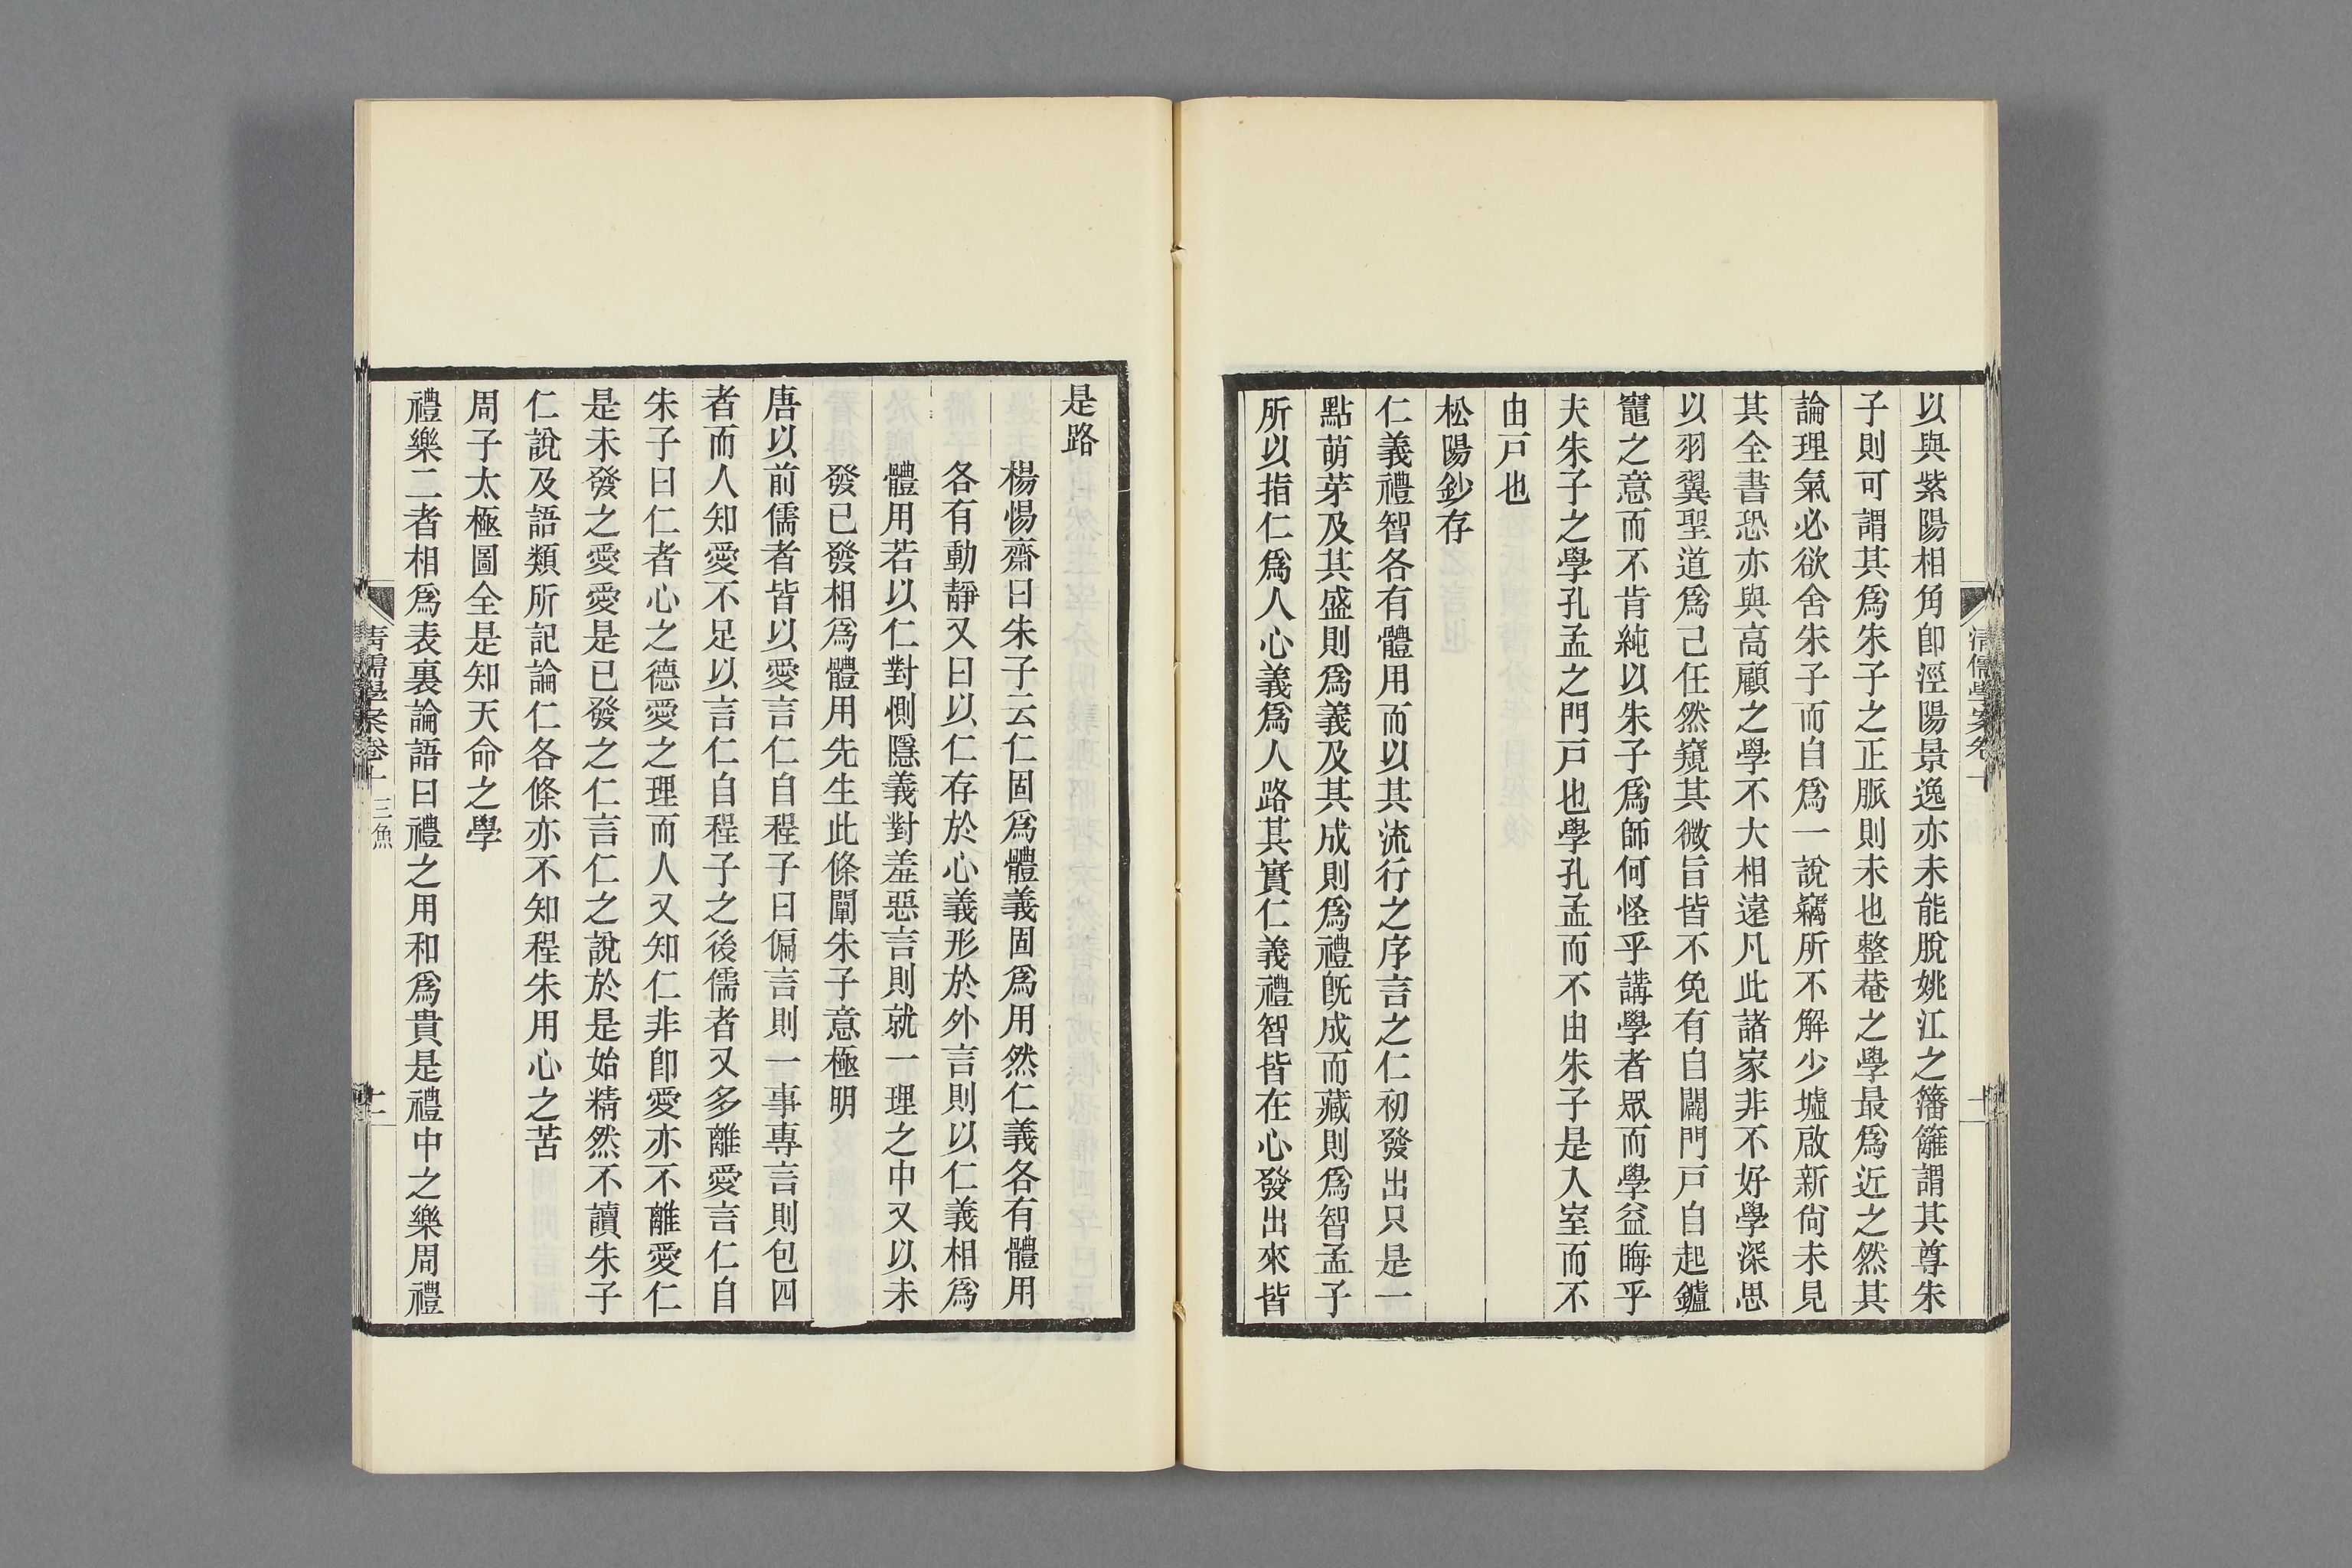 清儒學案卷十
以與紫陽相角卽涇陽景逸亦未能脫姚江之籓籬謂其尊朱
子則可謂其爲朱子之正脈則未也整菴之學最爲近之然其
論理氣必欲舍朱子而自爲一說竊所不解少墟啟新尙未見
其全書恐亦與高顧之學不大相遠凡此諸家非不好學深思
以羽翼聖道爲己任然窺其微旨皆不免有自闢門戸自起鑪
竈之意而不肯純以朱子爲師何怪乎講學者眾而學益晦乎
夫朱子之學孔孟之門戸也學孔孟而不由朱子是入室而不
由戸也
松陽鈔存
仁義禮智各有體用而以其流行之序言之仁初發出只是一
點萌芽及其盛則爲義及其成則爲禮旣成而藏則爲智孟子
所以指仁爲人心義爲人路其實仁義禮智皆在心發出來皆
是路
楊惕齋曰朱子云仁固爲體義固爲用然仁義各有體用
各有動靜又曰以仁存於心義形於外言則以仁義相爲
體用若以仁對惻隱義對羞惡言則就一理之中又以未
發已發相爲體用先生此條闡朱子意極明
唐以前儒者皆以愛言仁自程子曰偏言則一事專言則包四
者而人知愛不足以言仁自程子之後儒者又多離愛言仁自
朱子曰仁者心之德愛之理而人又知仁非卽愛亦不離愛仁
是未發之愛愛是已發之仁言仁之說於是始精然不讀朱子
仁說及語類所記論仁各條亦不知程朱用心之苦
周子太極圖全是知天命之學
禮樂二者相爲表裏論語曰禮之用和爲貴是禮中之樂周禮
清儒學案卷十 三魚 十二